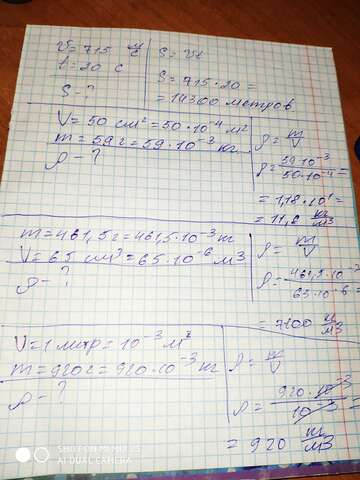 v = 715 м/с
t = 20 с
S - ?
S = vt
S = 715 · 20 =
= 14300 метров
V = 50 см² = 50 · 10⁻⁴ м²
m = 59г = 59 · 10⁻³ кг
ρ - ?
ρ = m/V
ρ = 59 · 10⁻³ / 50 · 10⁻⁴ =
= 1,18 · 10¹ =
= 11,8 кг/м3
m = 461,5г = 461,5 · 10⁻³ кг
V = 65 см³ = 65 · 10⁻⁶ м3
ρ - ?
ρ = m/V
ρ = 461,5 · 10⁻³ / 65 · 10⁻⁶ =
= 7100 кг/м3
V = 1 литр = 10⁻³ м³
m = 920г = 920 · 10⁻³ кг
ρ - ?
ρ = m/V
ρ = 920 · 10⁻³ / 10⁻³ =
= 920 кг/м3
SHOT ON MI 9 LITE
AI TRIPLE CAMERA